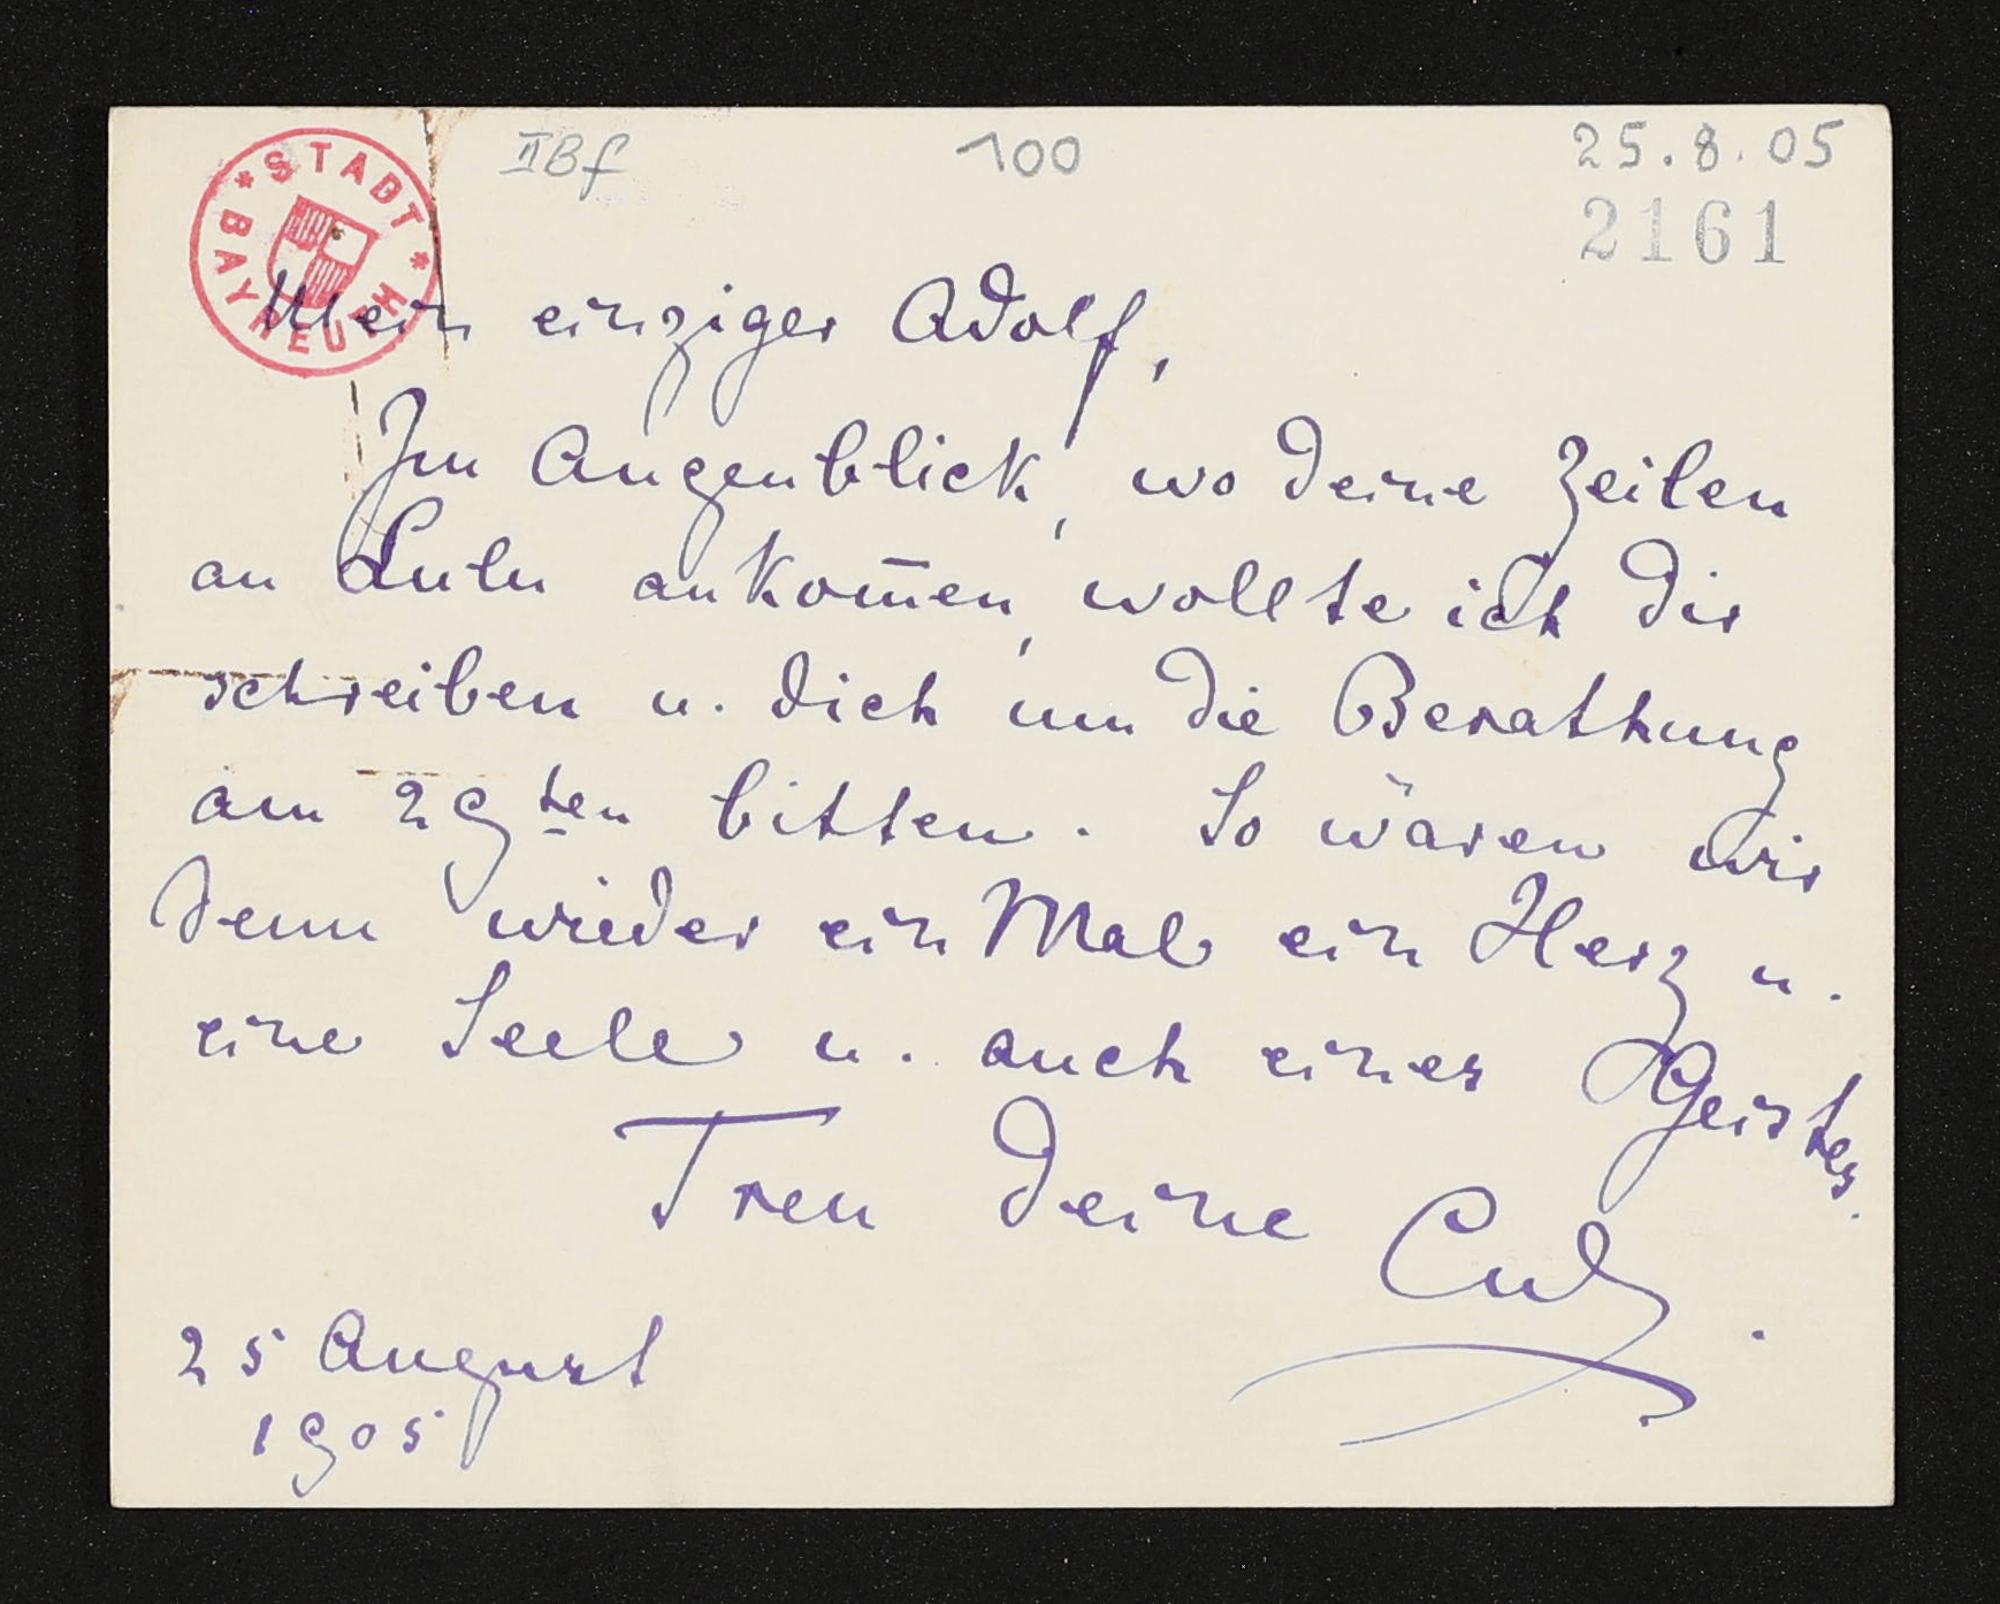 * STADT *
BAYREUTH
IIBf
100
25.8.05
2161
Mein einziger Adolf,
Im Augenblick, wo deine Zeilen
an Lulu ankom̄en, wollte ich dir
schreiben u. dich um die Berathung
am 29ten bitten. So wären wir
denn wieder ein Mal ein Herz u.
eine Seele u. auch eines Geistes.
Treu deine
25 August
1905